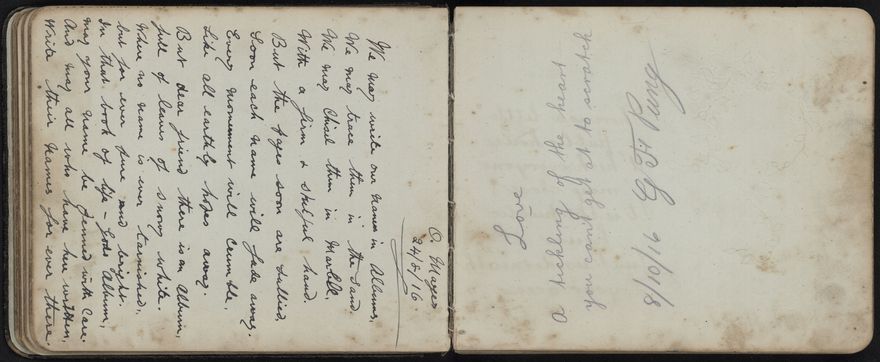 We may write our names in Albums,
We may trace them in the sand.
We may Chisel them in Marble,
With a firm & skilful hand.
But the pages soon are sullied,
Soon each name will fade away.
Every monument will crumble,
Like all earthly hopes away.
But dear friend there is an Album,
full of leaves of snowy white.
Where no name is ever tarnished,
but for ever pure and bright.
In that book of life - Gods Album,
may your name be penned with care
And may all who have here written,
Write their names for ever there.
O. Mayes
24/8/16.
Love
A tickling of the heart
you can't get at to scratch
8/10/16 G F